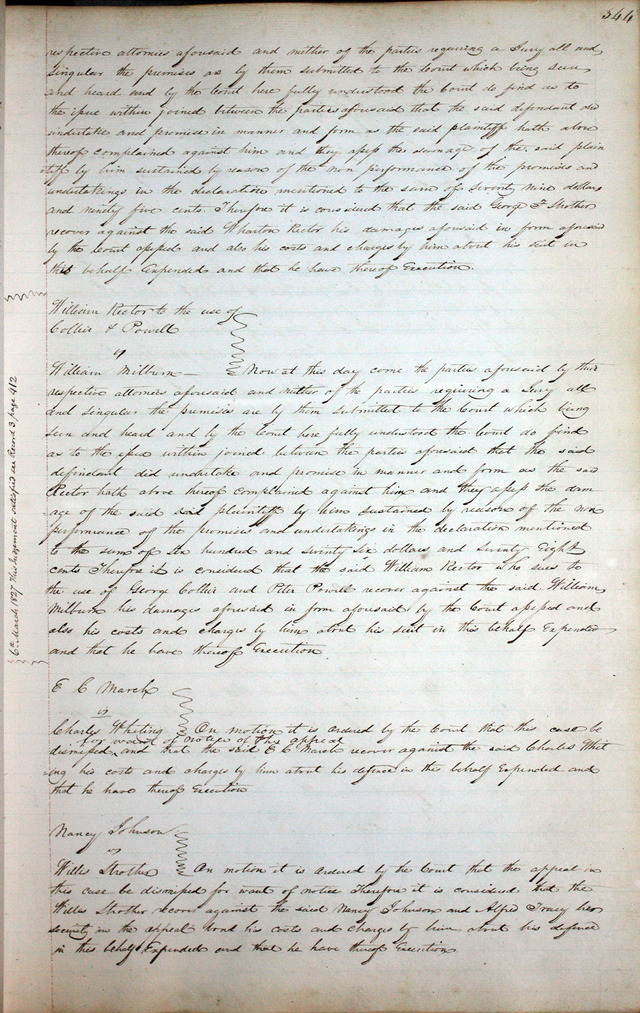 344
respective attornies aforesaid and neither of the parties requiring a Jury all and
Singular the premises as by them submitted to the Court which being seen
and heard and by the Court here fully understood the Court do find as to
the issue within joined between the parties aforesaid that the said defendant did
undertake and promise in manner and form as the said plaintiff hath above
thereof complained against him and they assess the damage of the said plain
tiff by him sustained by reason of the non performance of the promises and
undertakings in the declaration mentioned to the sum of Seventy Nine dollars
and ninety five cents. Therefore it is considered that the said George F Strother
recover against the said Wharton Rector his damages aforesaid in form aforesaid
by the Court assessed and also his costs and charges by him about his suit in
this behalf Expended and that he have thereof Execution
William Rector to the use of
Collier & Powell
vs
William Milburn — Now at this day come the parties aforesaid by their
respective attornies aforesaid and neither of the parties requiring a Jury all
and Singular the premises are by them Submitted to the Court which being
seen and heard and by the Court here fully understood the Court do find
as to the issue within joined between the parties aforesaid that the said
defendant did undertake and promise in manner and form as the said
Rector hath above thereof complained against him and they assess the dam
age of the said said plaintiff by him sustained by reason of the non
performance of the promises and undertakings in the declaration mentioned
to the sum of six hundred and seventy six dollars and Seventy Eight
cents Therefore it is considered that the said William Rector who sues to
the use of George Collier and Peter Powell recover against the said William
Milburn his damages aforesaid in form aforesaid by the Court assessed and
also his costs and charges by him about his suit in this behalf Expended
and that he have thereof Execution
6th March 1827 This Judgement satisfied see Record 3, page 412
E C March
vs
Charles Whiting On motion it is ordered by the Court that this case be
for want of notice of this appeal
dismissed and that the said E C March recover against the said Charles Whit
ing his costs and charges by him about his defence in this behalf Expended and
that he have thereof Execution
Nancy Johnson
vs
Willis Strother On motion it is ordered by the Court that the appeal in
this case be dismissed for want of notice Therefore it is considered that the
Willis Strother recover against the said Nancy Johnson and Alfred Tracy her
security in the appeal bond his costs and charges by him about his defence
in this behalf Expended and that he have thereof Execution